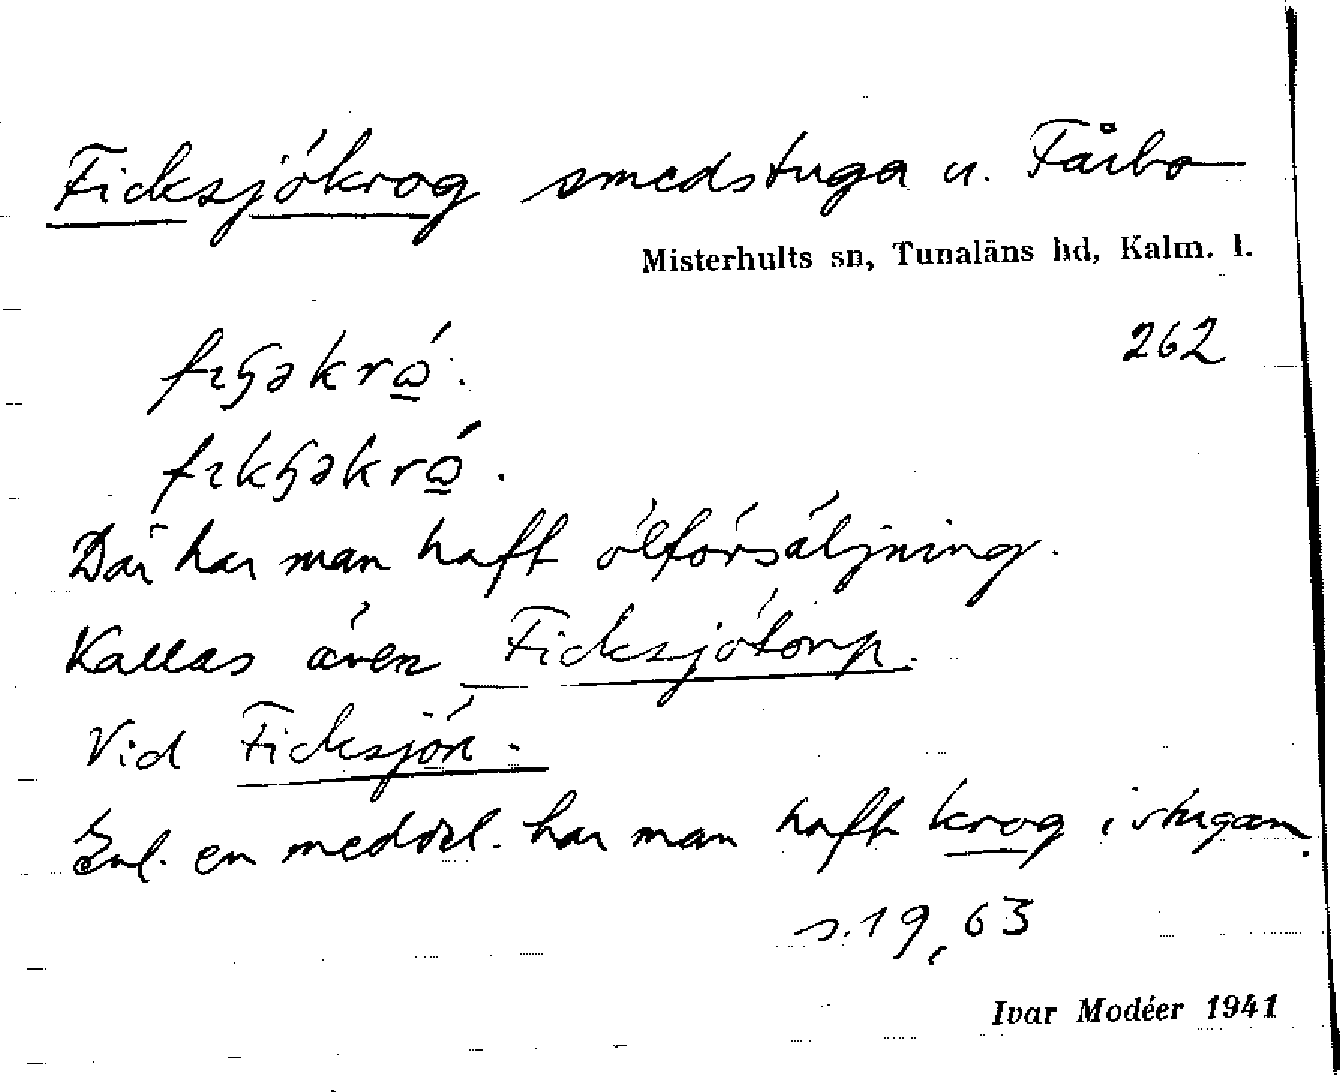 Ficksjökrog smedstuga u. Fårbo
Misterhults sn, Tunaläns hd, Kalm. l.
262
Där har man haft ölförsäljning.
Kallas även Ficksjötorp.
Vid Ficksjön.
Enl. en meddel. har man haft krog i stugan.
s. 19, 63
Ivar Modéer 1941